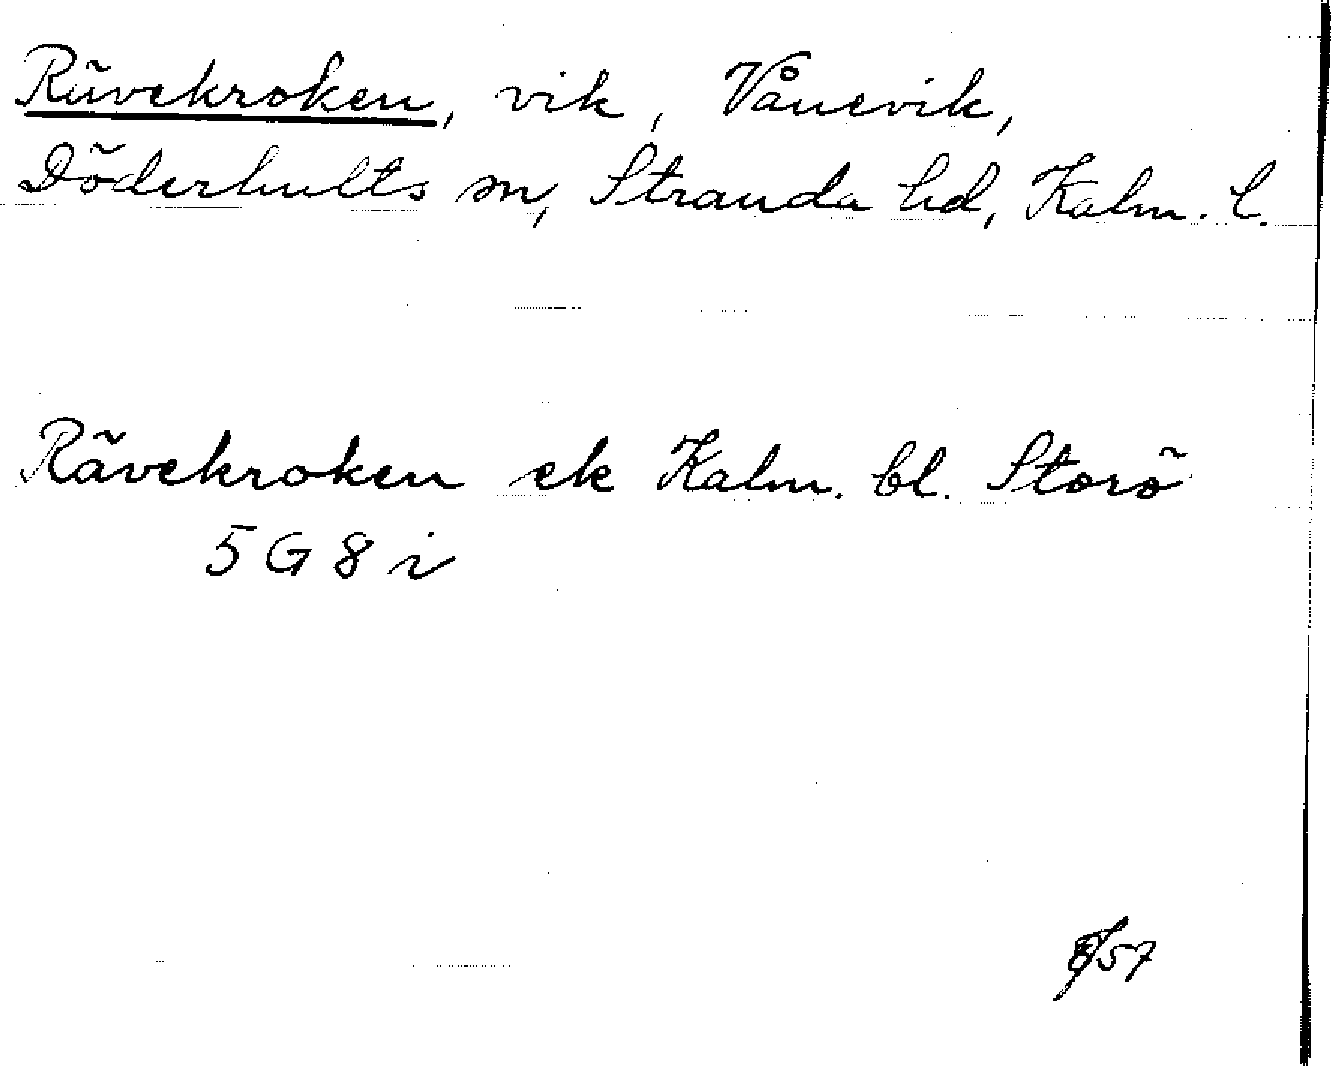 Rävekroken, vik, Vånevik,
Döderhults sn, Stranda hd, Kalm. l.
Rävekroken ek Kalm. bl. Storö
5 G 8 i
/57